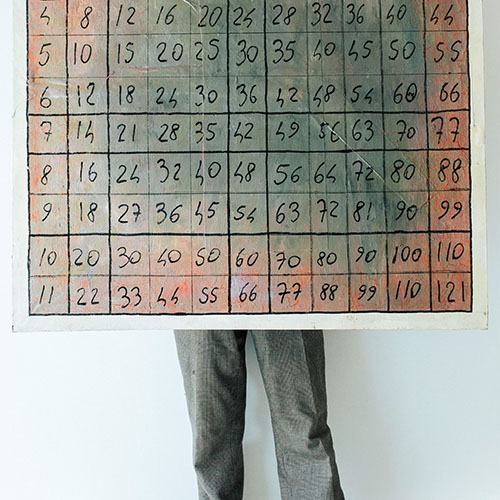 4 8 12 16 20 24 28 32 36 40 44
5 10 15 20 25 30 35 40 45 50 55
6 12 18 24 30 36 42 48 54 60 66
7 14 21 28 35 42 49 56 63 70 77
8 16 24 32 40 48 56 64 72 80 88
9 18 27 36 45 54 63 72 81 90 99
10 20 30 40 50 60 70 80 90 100 110
11 22 33 44 55 66 77 88 99 110 121